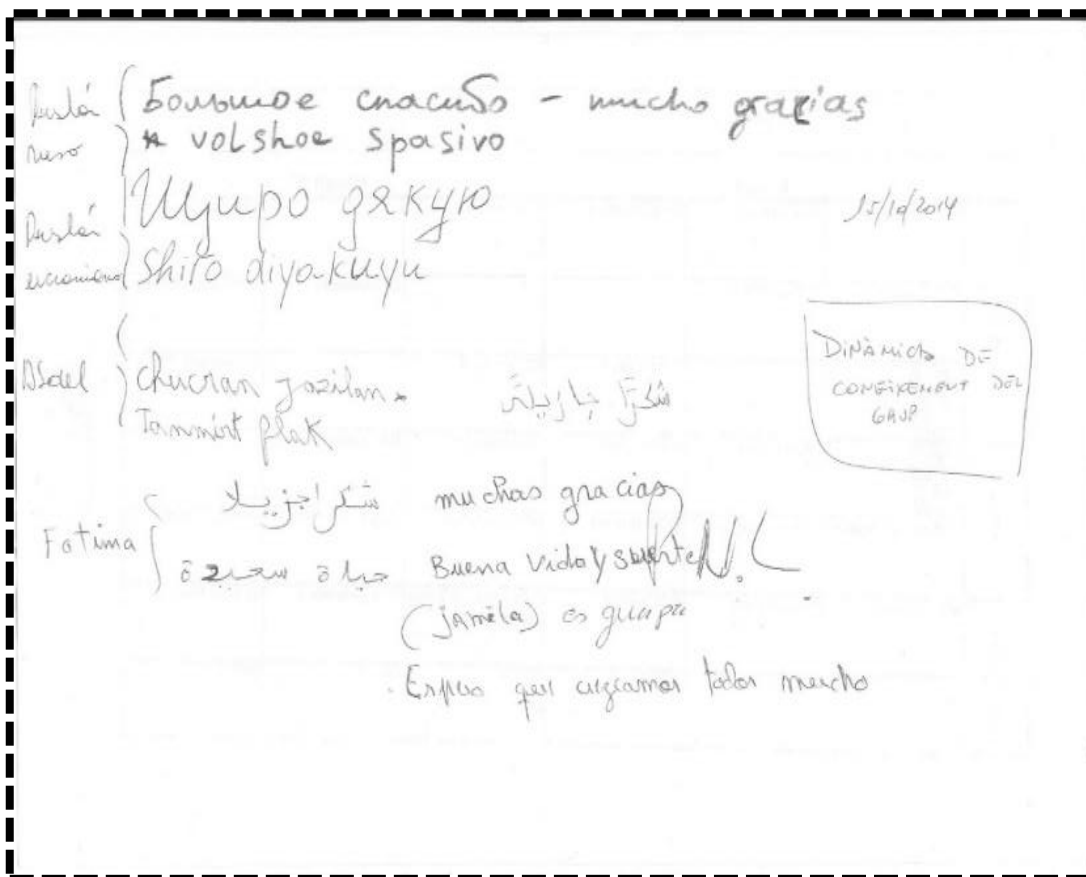 Ruslán { Большое спасибо - mucho gracias
ruso } volshoe spasivo
Ruslán { Щиро дякую
ucraniano { Shiro diyakuyu
15/10/2014
DINÀMICA DE
CONEIXEMENT DEL
GRUP
Abdel } chucran jazilan. شكرًا جازيلا
Tanmint flak
شكرا جزيلا muchas gracias
Fatima { حياة سعيدة Buena vida y suerte
(jamila) es guapa
Espero que crezcamos todos mucho